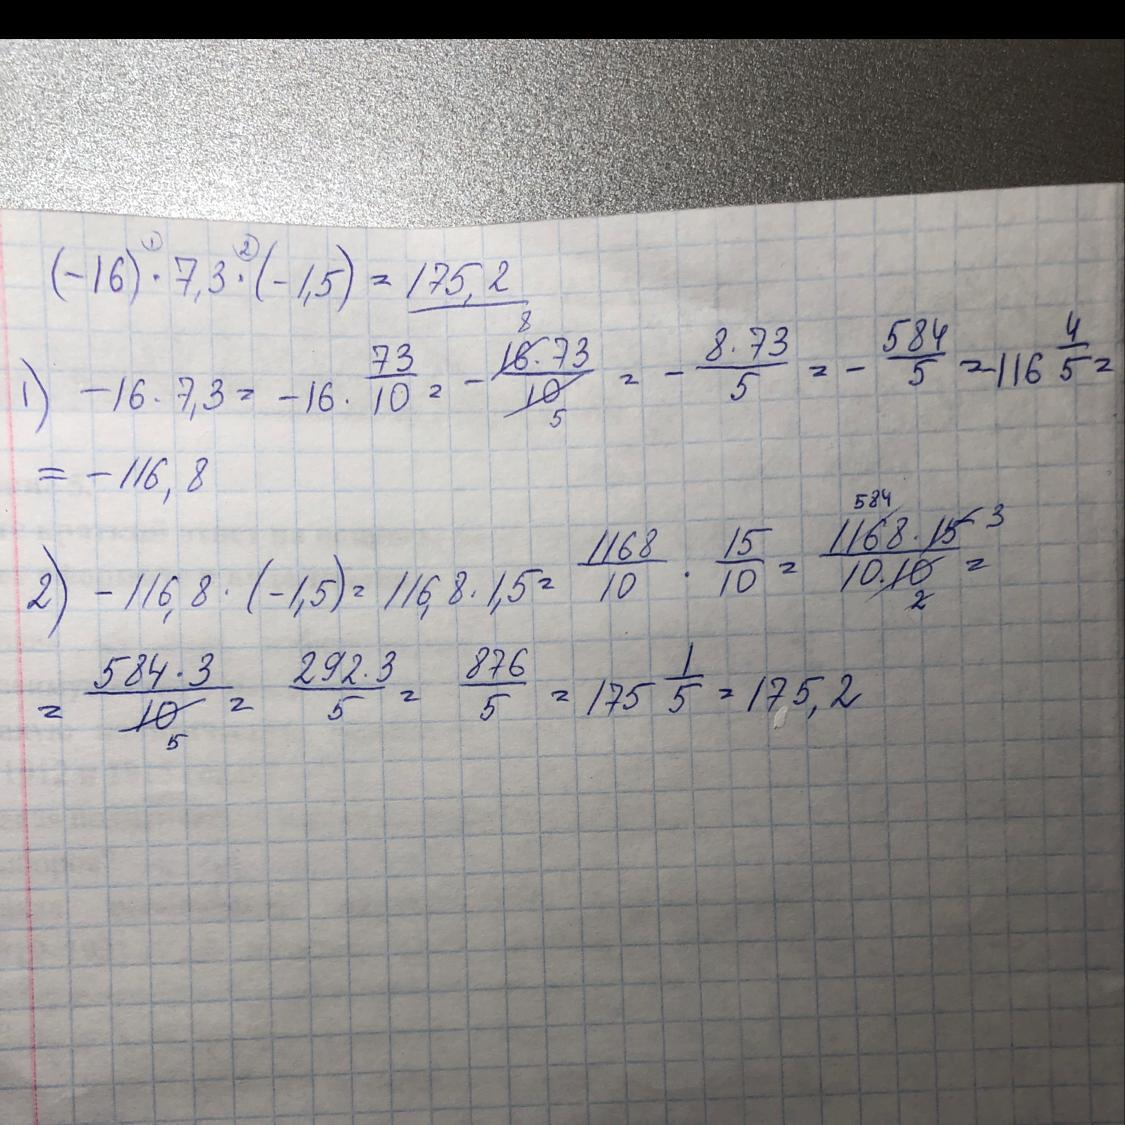 (-16) ①· 7,3 ②· (-1,5) = 175,2
1) -16 · 7,3 = -16 · 73/10 = - 16·73/10 8 5 = - 8·73/5 = - 584/5 = -116 4/5 =
= -116,8
2) -116,8 · (-1,5) = 116,8 · 1,5 = 1168/10 · 15/10 = 1168·15/10·10 584 3 2 =
= 584·3/10 5 = 292·3/5 = 876/5 = 175 1/5 = 175,2